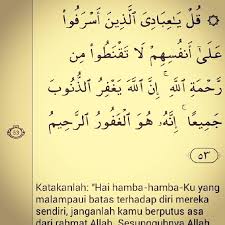 ۞ قُلْ يَـٰعِبَادِىَ ٱلَّذِينَ أَسْرَفُوا۟
عَلَىٰٓ أَنفُسِهِمْ لَا تَقْنَطُوا۟ مِن
رَّحْمَةِ ٱللَّهِ ۚ إِنَّ ٱللَّهَ يَغْفِرُ ٱلذُّنُوبَ
جَمِيعًا ۚ إِنَّهُۥ هُوَ ٱلْغَفُورُ ٱلرَّحِيمُ
٥٣
53
Katakanlah: "Hai hamba-hamba-Ku yang
malampaui batas terhadap diri mereka
sendiri, janganlah kamu berputus asa
dari rahmat Allah. Sesungguhnya Allah